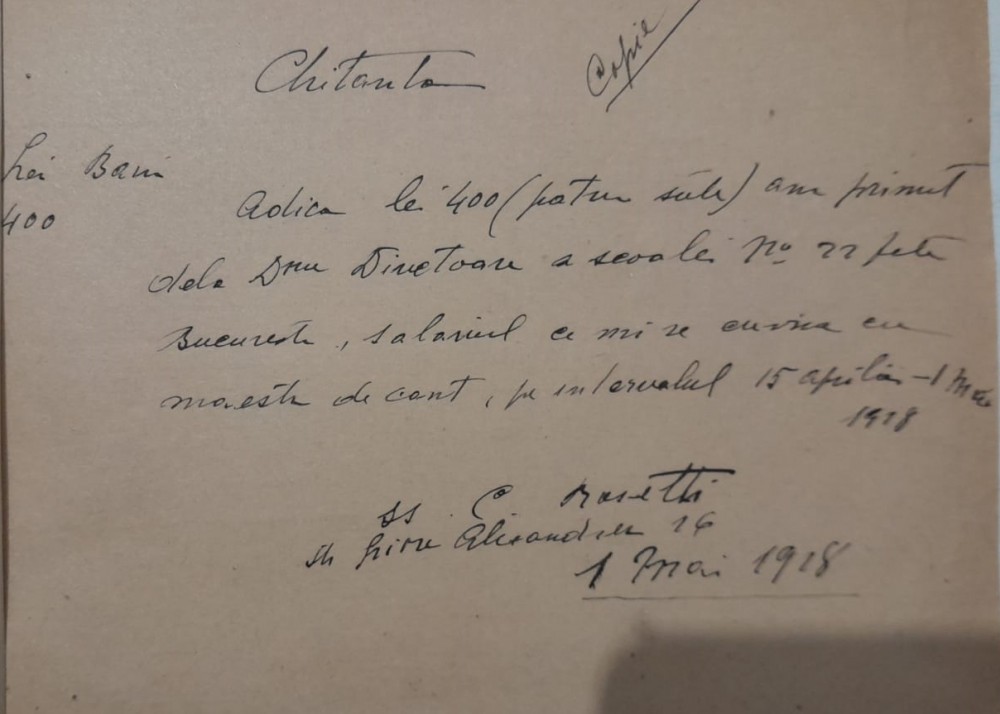 Copie
Chitanta
Lei Bani
400
Adica lei 400 (patru sute) am primit
dela Dna Directoare a scoalei No 22 fete
Bucuresti, salariul ce mi se cuvine ca
maestru de cant, pe intervalul 15 aprilie - 1 Mai
1918
ss C Rosetti
Alexandru 16
1 Mai 1918